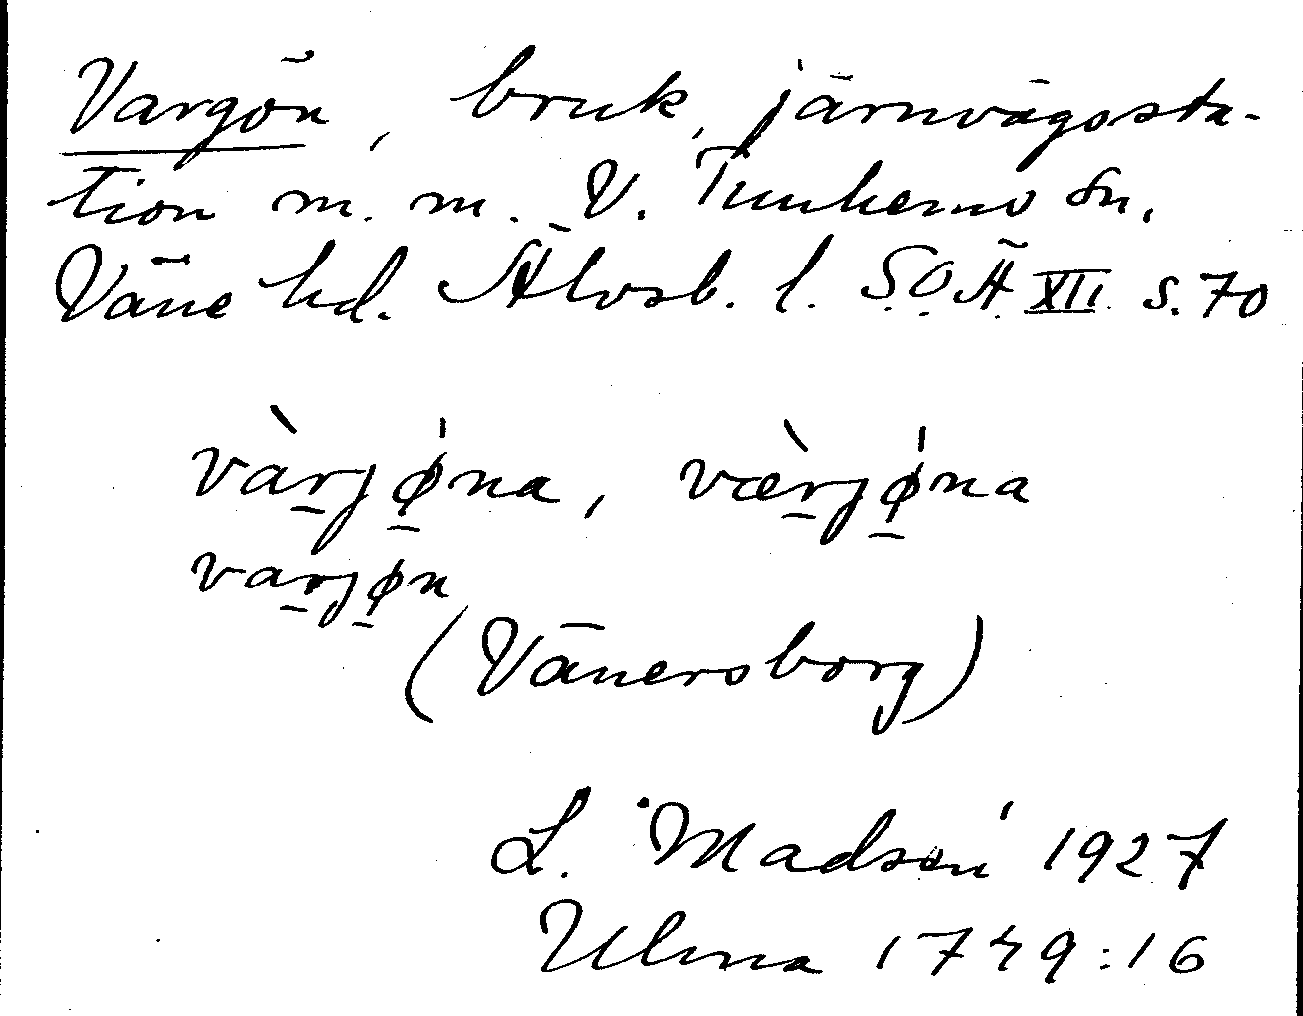 Vargön, bruk, järnvägssta-
tion m. m. V. Tunhems sn,
Väne hd. Älvsb. l. S.O.Ä. XII. s. 70
vàrjǿ̱na, væ̀rjǿ̱na
varjø̱n
(Vänersborg)
L. Madsén 1927
Ulma 1749:16